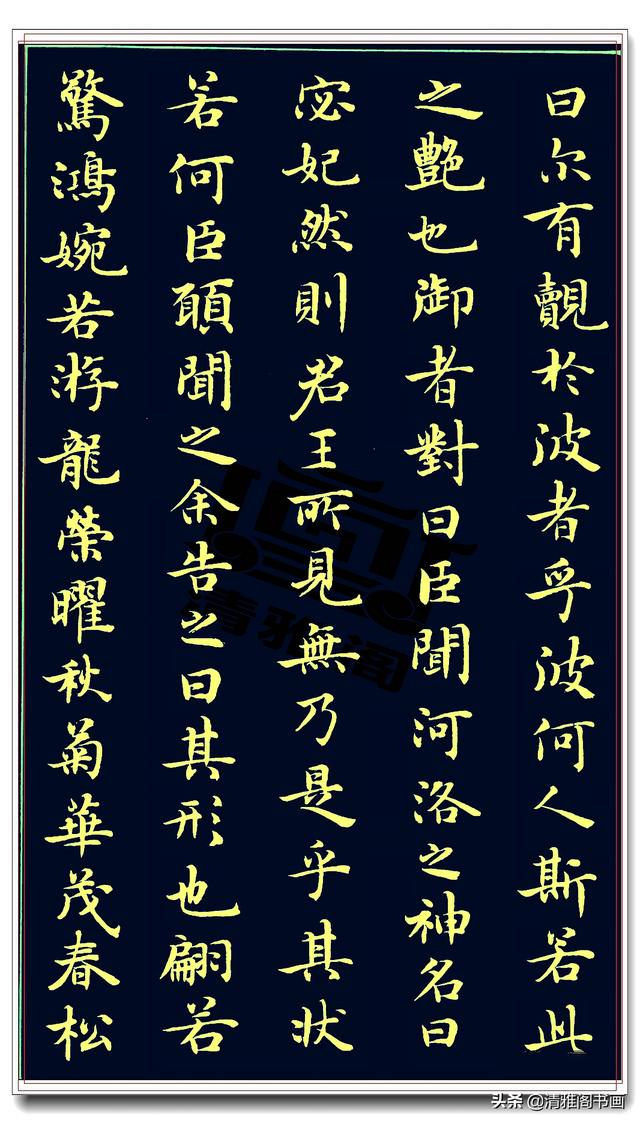 曰尔有觀於波者乎波何人斯若此
之艷也御者對曰臣聞河洛之神名曰
宓妃然則君王所見無乃是乎其状
若何臣願聞之余告之曰其形也翩若
驚鴻婉若游龍榮曜秋菊華茂春松
清雅阁
头条 @清雅阁书画